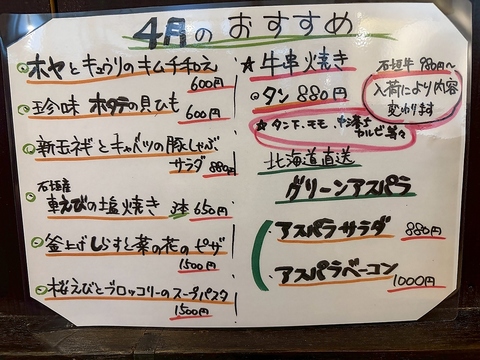 4月のおすすめ
ホヤとキュウリのキムチ和え
600円
珍味 ホタテの貝ひも
600円
新玉ネギとキャベツの豚しゃぶ
サラダ 880円
石垣産
車えびの塩焼き 2本 650円
釜上げしらすと菜の花のピザ
1500円
桜えびとブロッコリーのスープパスタ
1500円
★牛串焼き
石垣牛 980円〜
入荷により内容
変わります
タン 880円
★タン下、モモ、
カルビ等々
北海道直送
グリーンアスパラ
アスパラサラダ 880円
アスパラベーコン
1000円